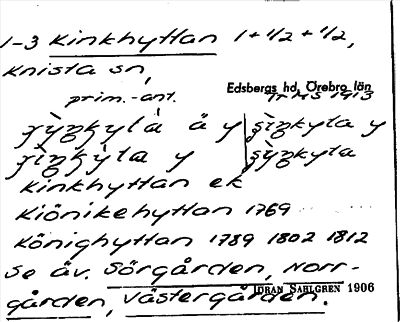 1-3 Kinkhyttan 1 + 1/2 + 1/2,
Knista sn,
Edsbergs hd, Örebro län
prim.-ant. ITMS 1913
ä y
y
Kinkhyttan ek
Kiönikehyttan 1769
Könighyttan 1789 1802 1812
Se äv. Sörgården, Norr-
gården, Västergården.
Jöran Sahlgren 1906